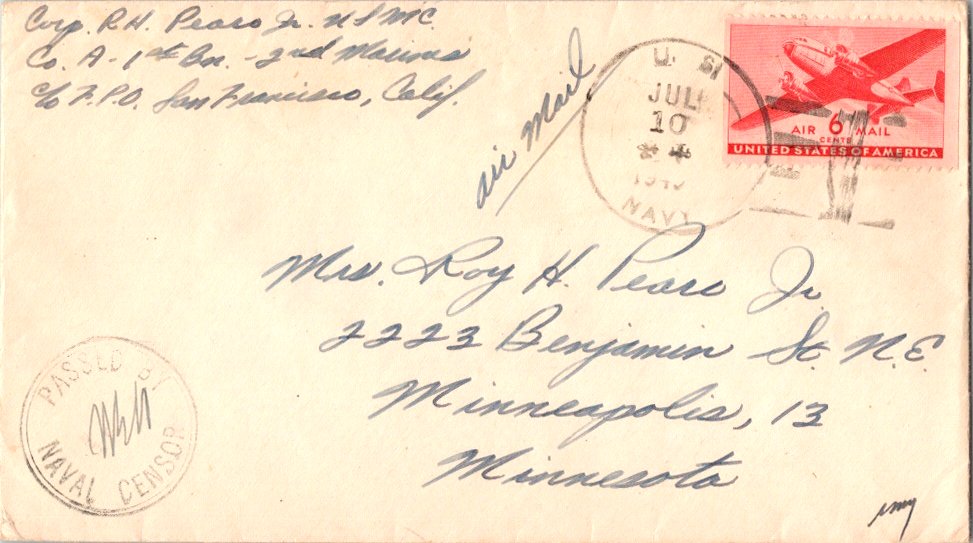 Corp. R. H. Pearo Jr. USMC
Co. A - 1st Bn. - 2nd Marines
c/o F.P.O. San Francisco, Calif.
Air Mail
U. S.
JUL
10
NAVY
AIR 6 MAIL
CENTS
UNITED STATES OF AMERICA
Mrs. Roy H. Pearo Jr.
2223 Benjamin St. N.E.
Minneapolis, 13
Minnesota
PASSED BY
NAVAL CENSOR